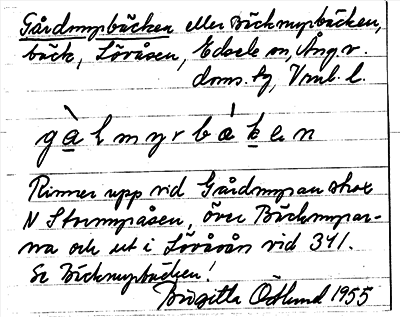 Gårdmyrbäcken eller Bäckmyrbäcken,
bäck, Lövåsen, Edsele sn, Ång. v.
doms. tg, Vnrl. l.
galmyrbäken
Rinner upp vid Gårdmyran strax
N Stormyråsen, över Bäckmyrar-
na och ut i Lövåån vid 341.
Se Bäckmyrbäcken!
Birgitta Östlund 1955